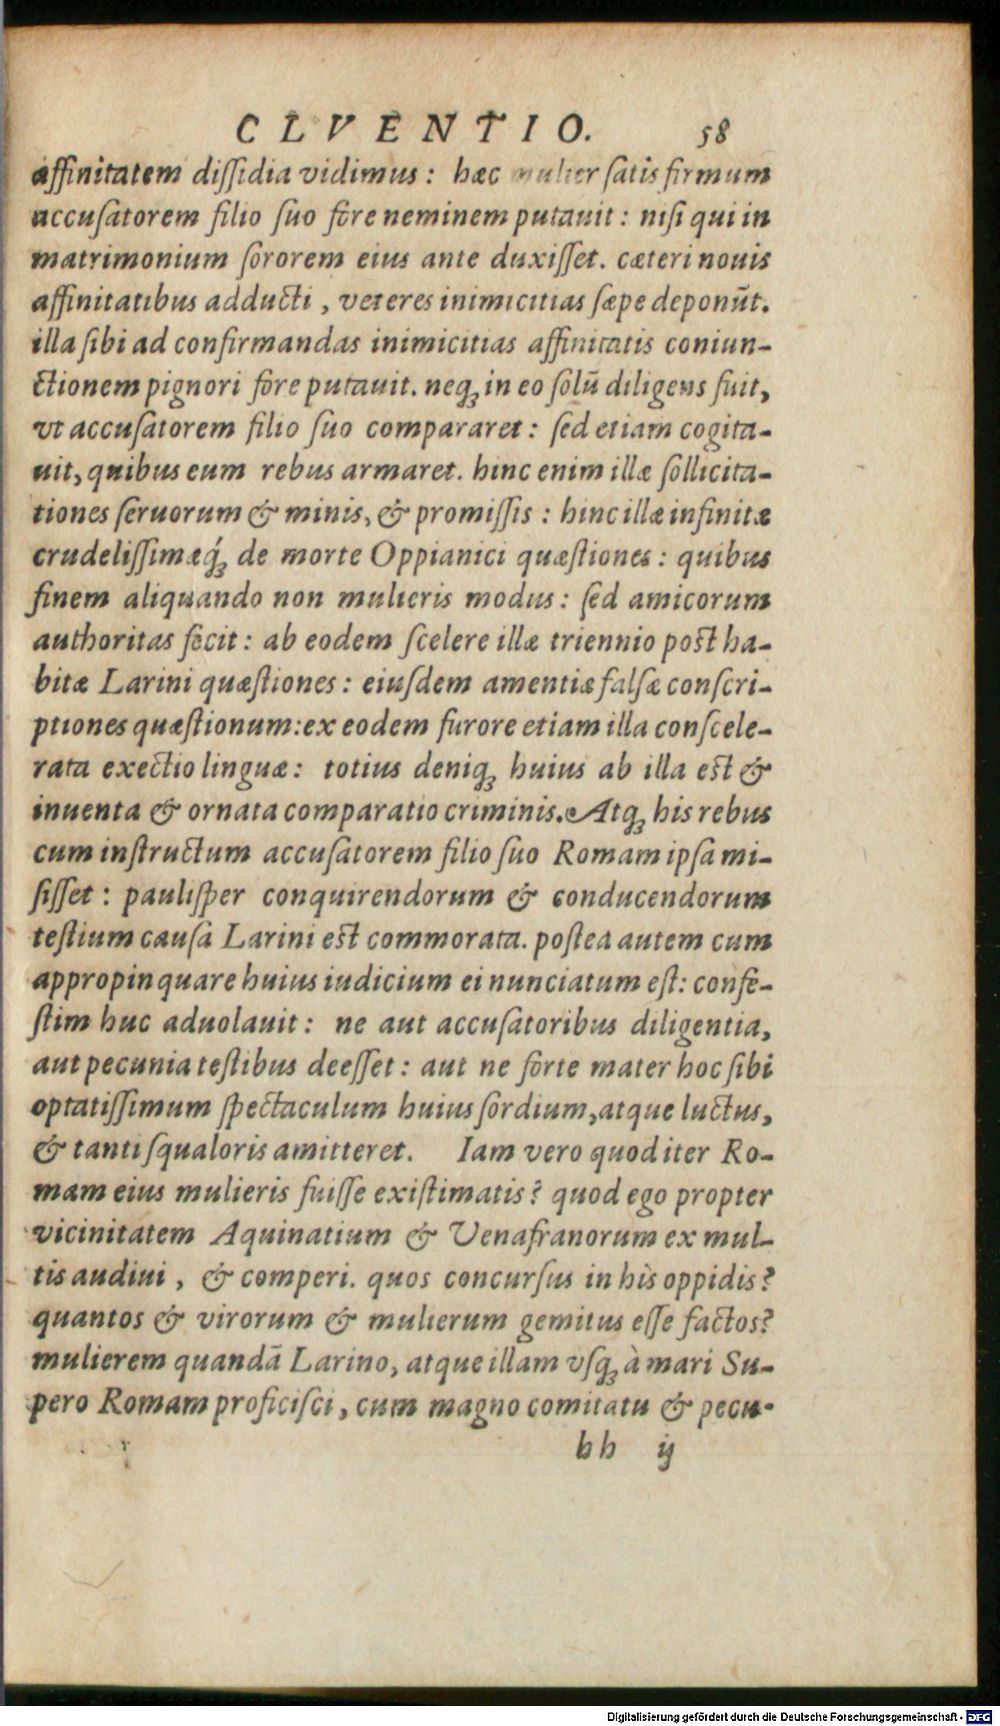 CLVENTIO. 58
affinitatem dissidia vidimus: hæc mulier satis firmum
accusatorem filio suo fore neminem putauit: nisi qui in
matrimonium sororem eius ante duxisset. cæteri nouis
affinitatibus adducti, veteres inimicitias sæpe deponūt.
illa sibi ad confirmandas inimicitias affinitatis coniun-
ctionem pignori fore putauit. neqꝫ in eo solū diligens fuit,
vt accusatorem filio suo compararet: sed etiam cogita-
uit, quibus eum rebus armaret. hinc enim illæ sollicita-
tiones seruorum & minis, & promissis: hinc illæ infinitæ
crudelissimæq́ꝫ de morte Oppianici quæstiones: quibus
finem aliquando non mulieris modus: sed amicorum
authoritas fecit: ab eodem scelere illæ triennio post ha-
bitæ Larini quæstiones: eiusdem amentiæ falsæ conscri-
ptiones quæstionum: ex eodem furore etiam illa conscele-
rata exectio linguæ: totius deniqꝫ huius ab illa est &
inuenta & ornata comparatio criminis. Atqꝫ his rebus
cum instructum accusatorem filio suo Romam ipsa mi-
sisset: paulisper conquirendorum & conducendorum
testium causa Larini est commorata. postea autem cum
appropinquare huius iudicium ei nunciatum est: confe-
stim huc aduolauit: ne aut accusatoribus diligentia,
aut pecunia testibus deesset: aut ne forte mater hoc sibi
optatissimum spectaculum huius sordium, atque luctus,
& tanti squaloris amitteret. Iam vero quod iter Ro-
mam eius mulieris fuisse existimatis? quod ego propter
vicinitatem Aquinatium & Venafranorum ex mul-
tis audiui, & comperi. quos concursus in his oppidis?
quantos & virorum & mulierum gemitus esse factos?
mulierem quandā Larino, atque illam vsqꝫ à mari Su-
pero Romam proficisci, cum magno comitatu & pecu-
bb ij
Digitalisierung gefördert durch die Deutsche Forschungsgemeinschaft - DFG